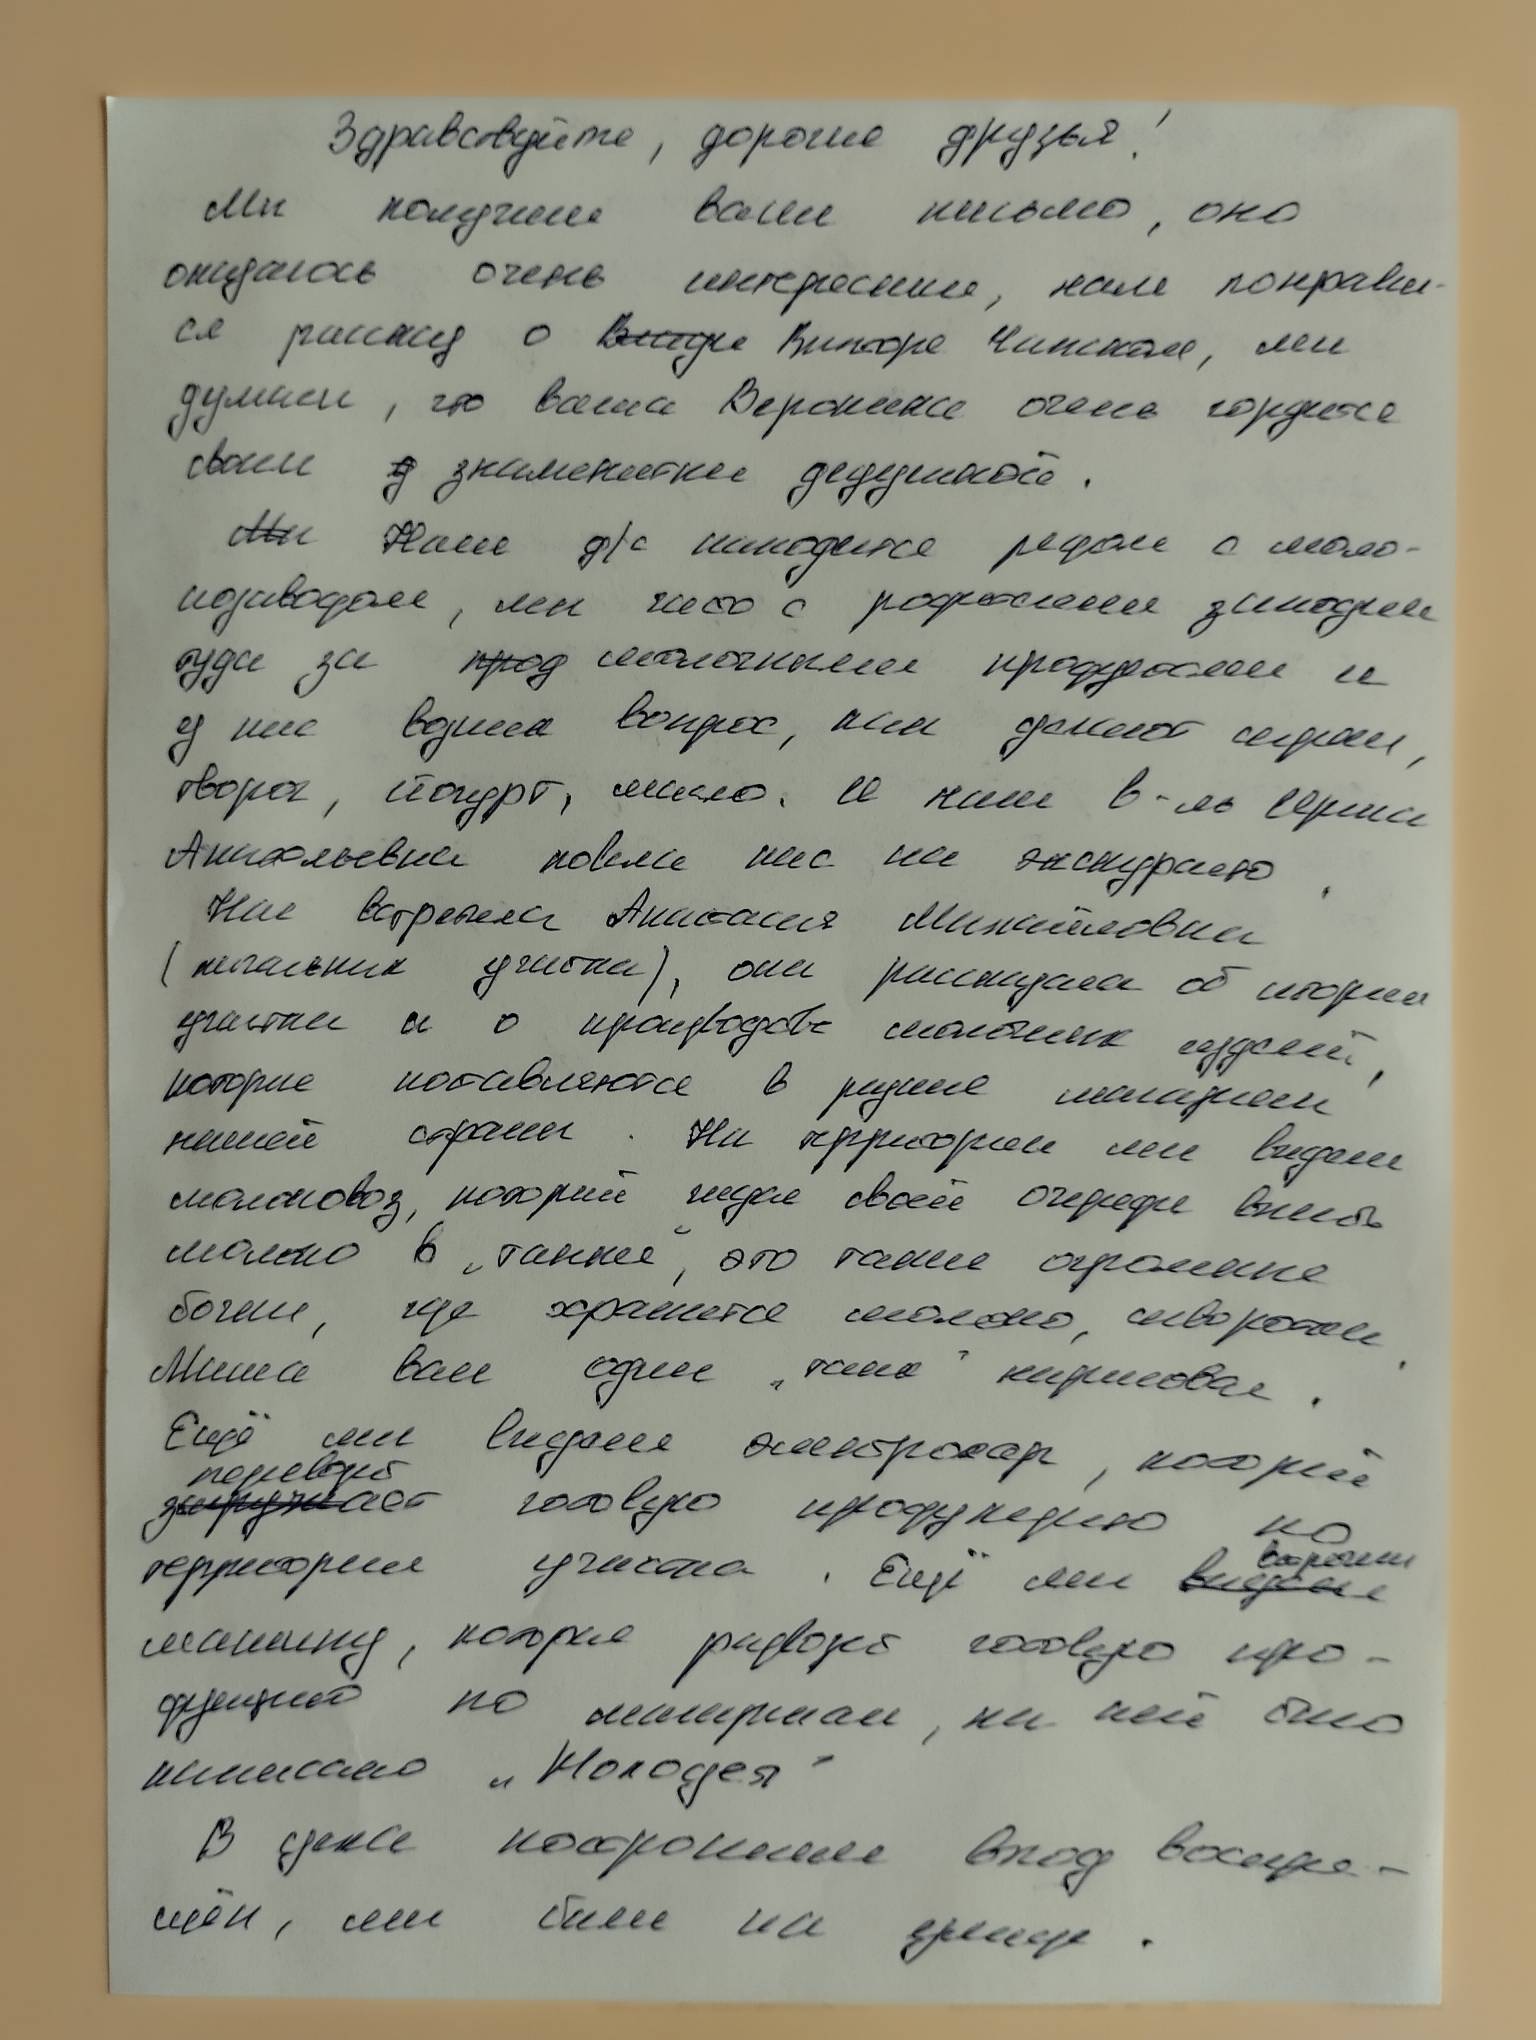 Здравсвуйте, дорогие друзья!
Мы получили ваше письмо, оно
оказалось очень интересным, нам понравил-
ся рассказ о Викторе Чинском, мы
думаем, что ваша Вероника очень гордится
своим знаменитым дедушкой.
Наш д/с находится рядом с моло-
козаводом, мы часто с родителями заходим
туда за молочными продуктами и
у нас возник вопрос, как делают сырки,
творог, йогурт, масло. И наш в-ль Ирина
Анатольевна повела нас на экскурсию.
Нас встретила Анастасия Михайловна
(начальник участка), она рассказала об истории
участка и о производстве молочных изделий,
которые поставляются в разные магазины
нашей страны. На территории мы видели
молоковоз, который ждал своей очереди вылить
молоко в „танки", это такие огромные
бочки, где хранится молоко, сыворотки.
Миша вам один „танк" нарисовал.
Ещё мы видели электрокар, который
перевозит готовую продукцию по
территории участка. Ещё мы встретили
машину, которая развозит готовую про-
дукцию по магазинам, на ней было
написано „Молодея"
В цеха посторонним вход воспре-
щён, мы были на улице.